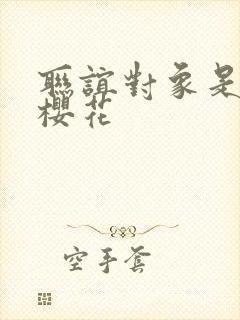 聯誼對象是
櫻花
空手套